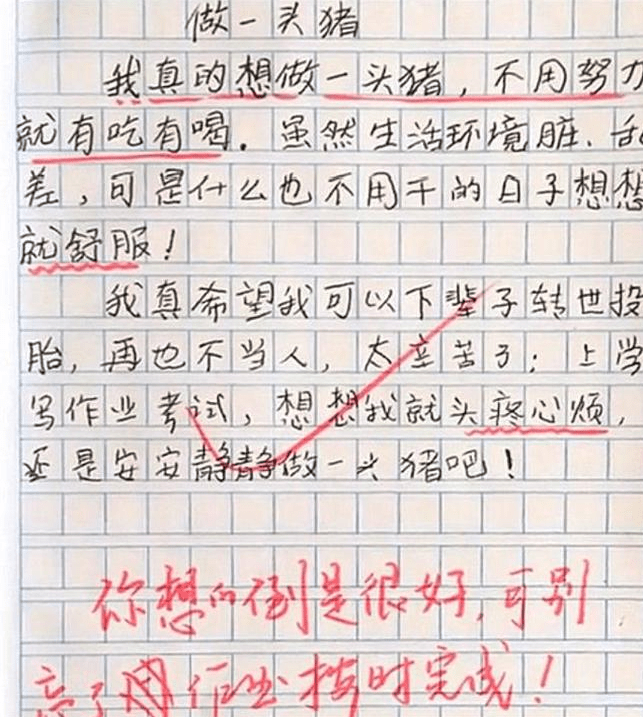 做一头猪
我真的想做一头猪，不用努力
就有吃有喝．虽然生活环境脏、乱
差，可是什么也不用干的日子想想
就舒服！
我真希望我可以下辈子转世投
胎，再也不当人，太辛苦了；上学
写作业考试，想想我就头疼心烦，
还是安安静静做一头猪吧！
你想的倒是很好，可别
忘了 作业按时完成！